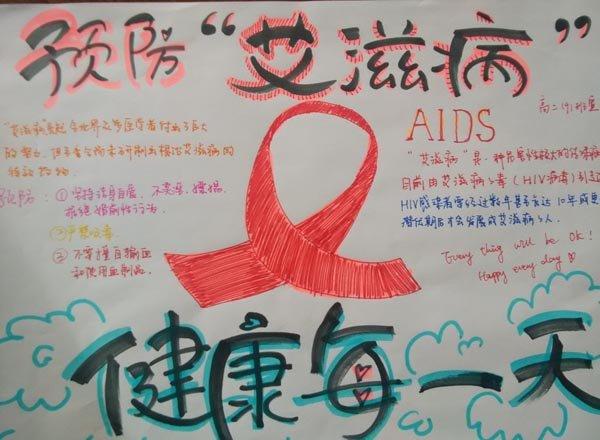 预防“艾滋病”
高二(9)班宣
AIDS
"艾滋病"虽然全世界众多医学者付出了巨大
的努力，但至今尚未研制出根治艾滋病的
特效药物.
预防: ① 坚持洁身自爱、不卖淫、嫖娼、
拒绝婚前性行为
③严禁吸毒
② 不要擅自输血
和使用血制品.
"艾滋病"是一种危害性极大的传染病
目前由艾滋病病毒 (HIV病毒) 引起
HIV感染者要经过数年甚至长达10年或更
潜伏期后才会发展成艾滋病病人.
Every thing will be OK!
Happy every day
健康每一天